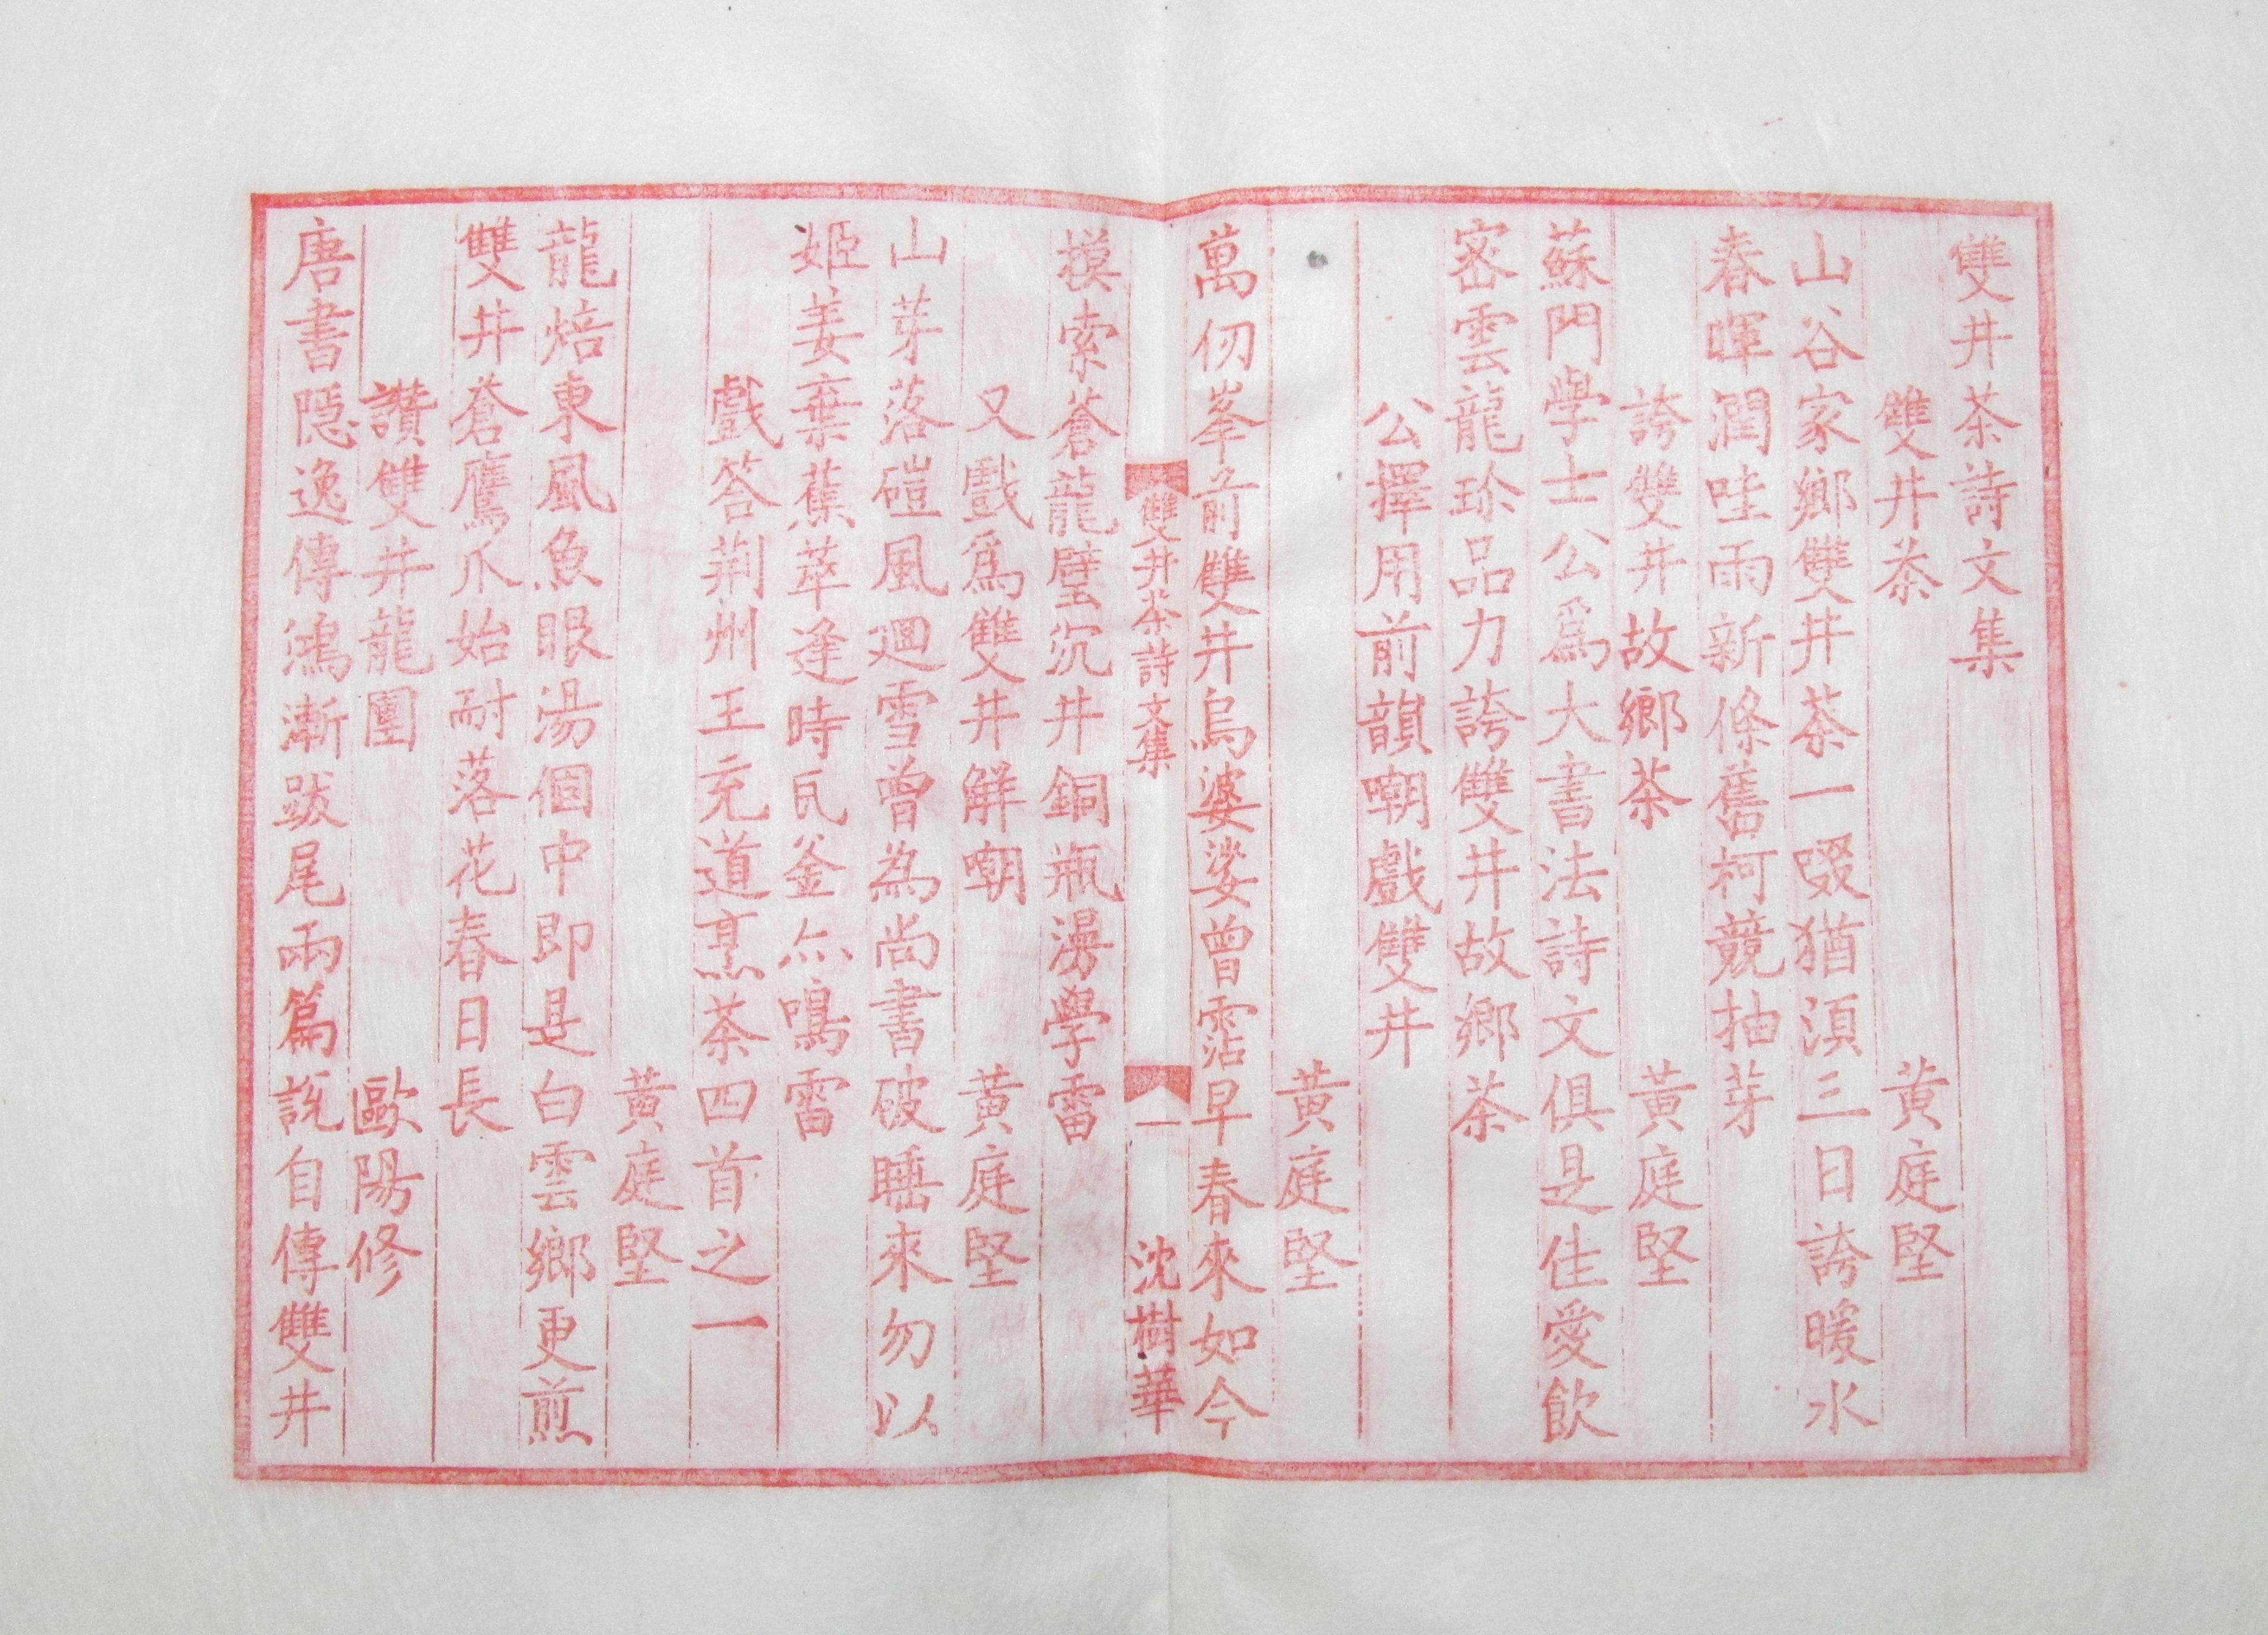 雙井茶詩文集
雙井茶 黃庭堅
山谷家鄉雙井茶一啜猶湏三日誇暖水
春暉潤哇雨新條舊柯競抽芽
誇雙井故鄉茶 黃庭堅
蘇門學士公爲大書法詩文俱是佳愛飲
密雲龍珍品力誇雙井故鄉茶
公擇用前韻嘲戲雙井
黃庭堅
萬仞峯前雙井塢婆娑曾霑早春來如今
雙井茶詩文集 一 沈樹華
摸索蒼龍璧沉井銅瓶漫學雷
又戲爲雙井解嘲 黃庭堅
山芽落磑風迴雪曾為尚書破睡來勿以
姬姜棄蕉萃逢時瓦釜亦鳴雷
戲答荆州王充道烹茶四首之一
黃庭堅
龍焙東風魚眼湯個中即是白雲鄉更煎
雙井蒼鷹爪始耐落花春日長
讚雙井龍團 歐陽修
唐書隱逸傳鴻漸跋尾兩篇說自傳雙井